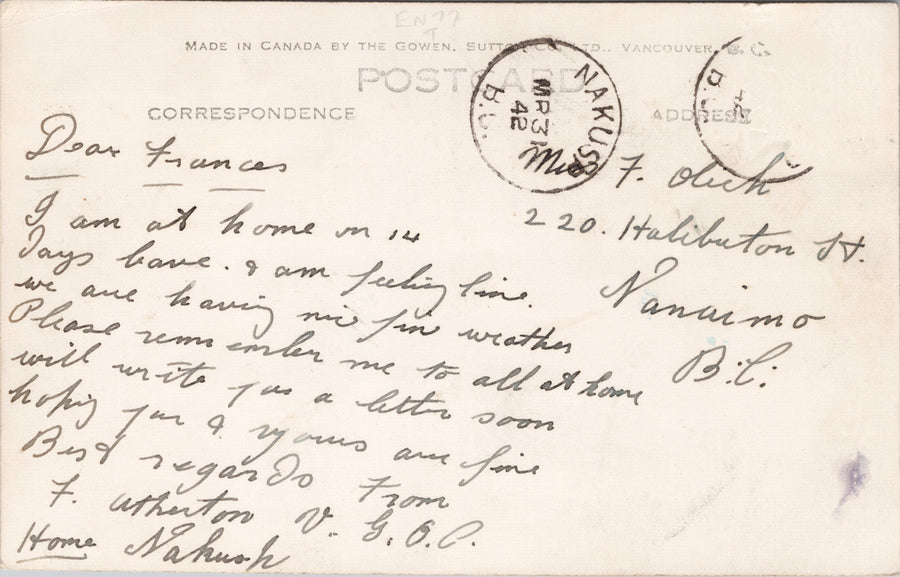 EN77
MADE IN CANADA BY THE GOWEN, SUTTON CO. LTD., VANCOUVER, B. C.
POSTCARD
CORRESPONDENCE
ADDRESS
NAKUSP
MR 31
42
B.C.
B.C.
Dear Frances
I am at home on 14
days leave. & am feeling fine.
we are having nice fine weather
Please remember me to all at home
will write you a letter soon
hoping you & yours are fine
Best regards From
F. Atherton V. G. O. C.
Home Nakusp
F. Olich
220. Haliburton St.
Nanaimo
B.C.